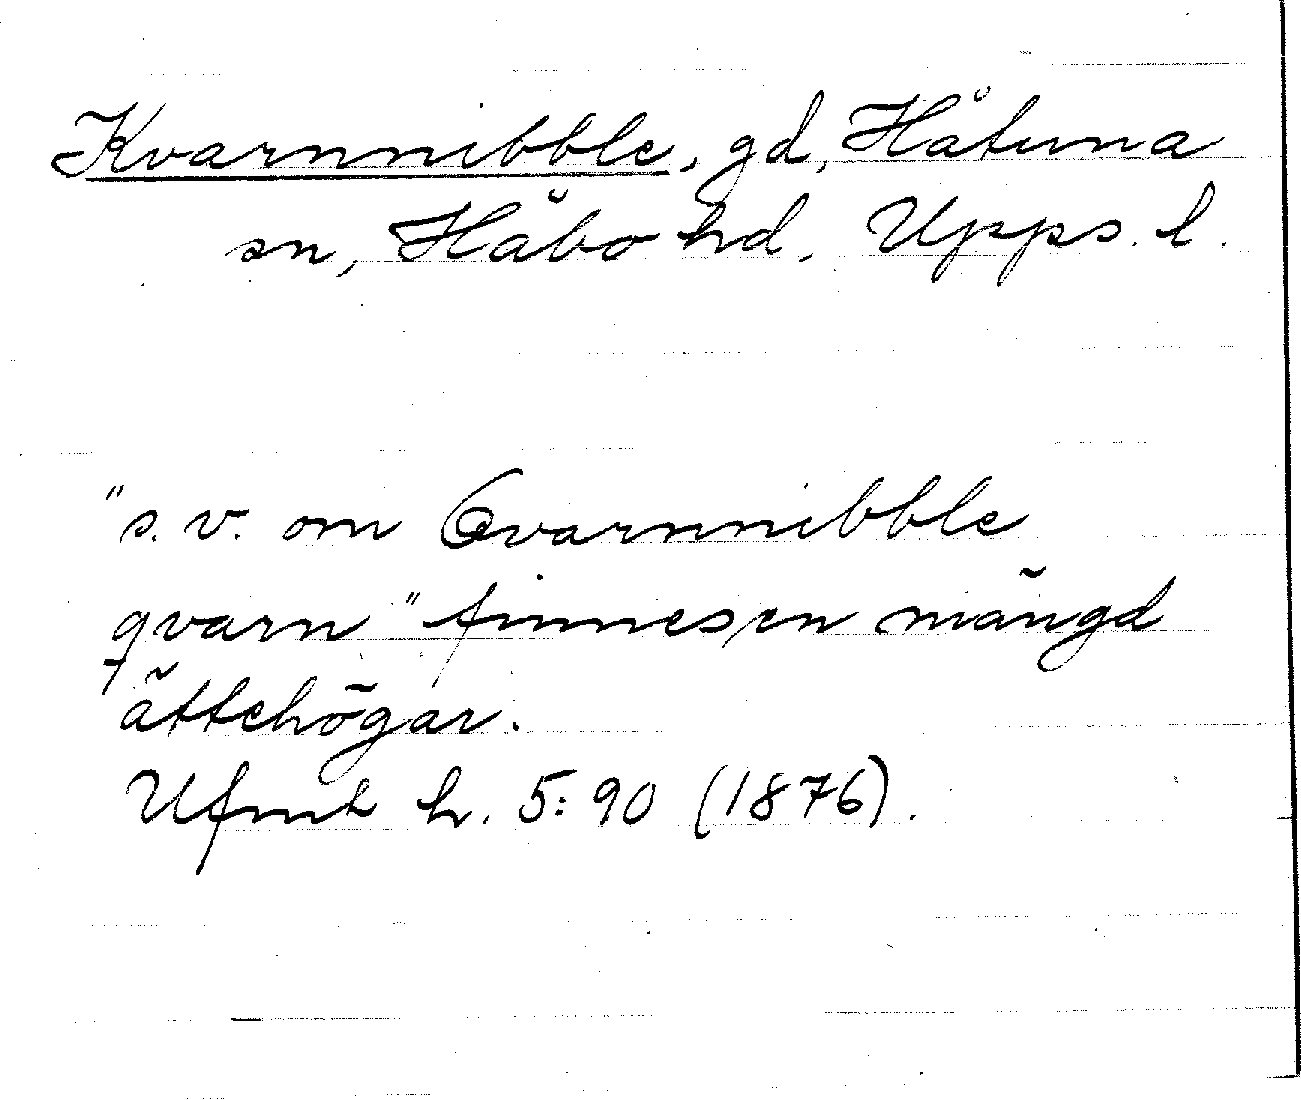 Kvarnnibble, gd, Håtuna
sn, Håbo hd. Upps. l.
"s.v. om Qvarnnibble
qvarn" finnes en mängd
ättehögar.
Ufmt h. 5:90 (1876).